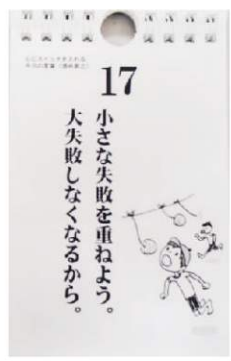 17
小さな失敗を重ねよう。
大失敗しなくなるから。